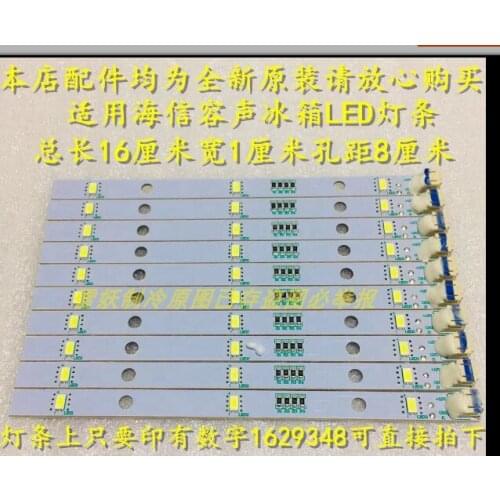 本店配件均为全新原装请放心购买
适用海信容声冰箱LED灯条
总长16厘米宽1厘米孔距8厘米
冷原图已存
必
灯条上只要印有数字1629348可直接拍下